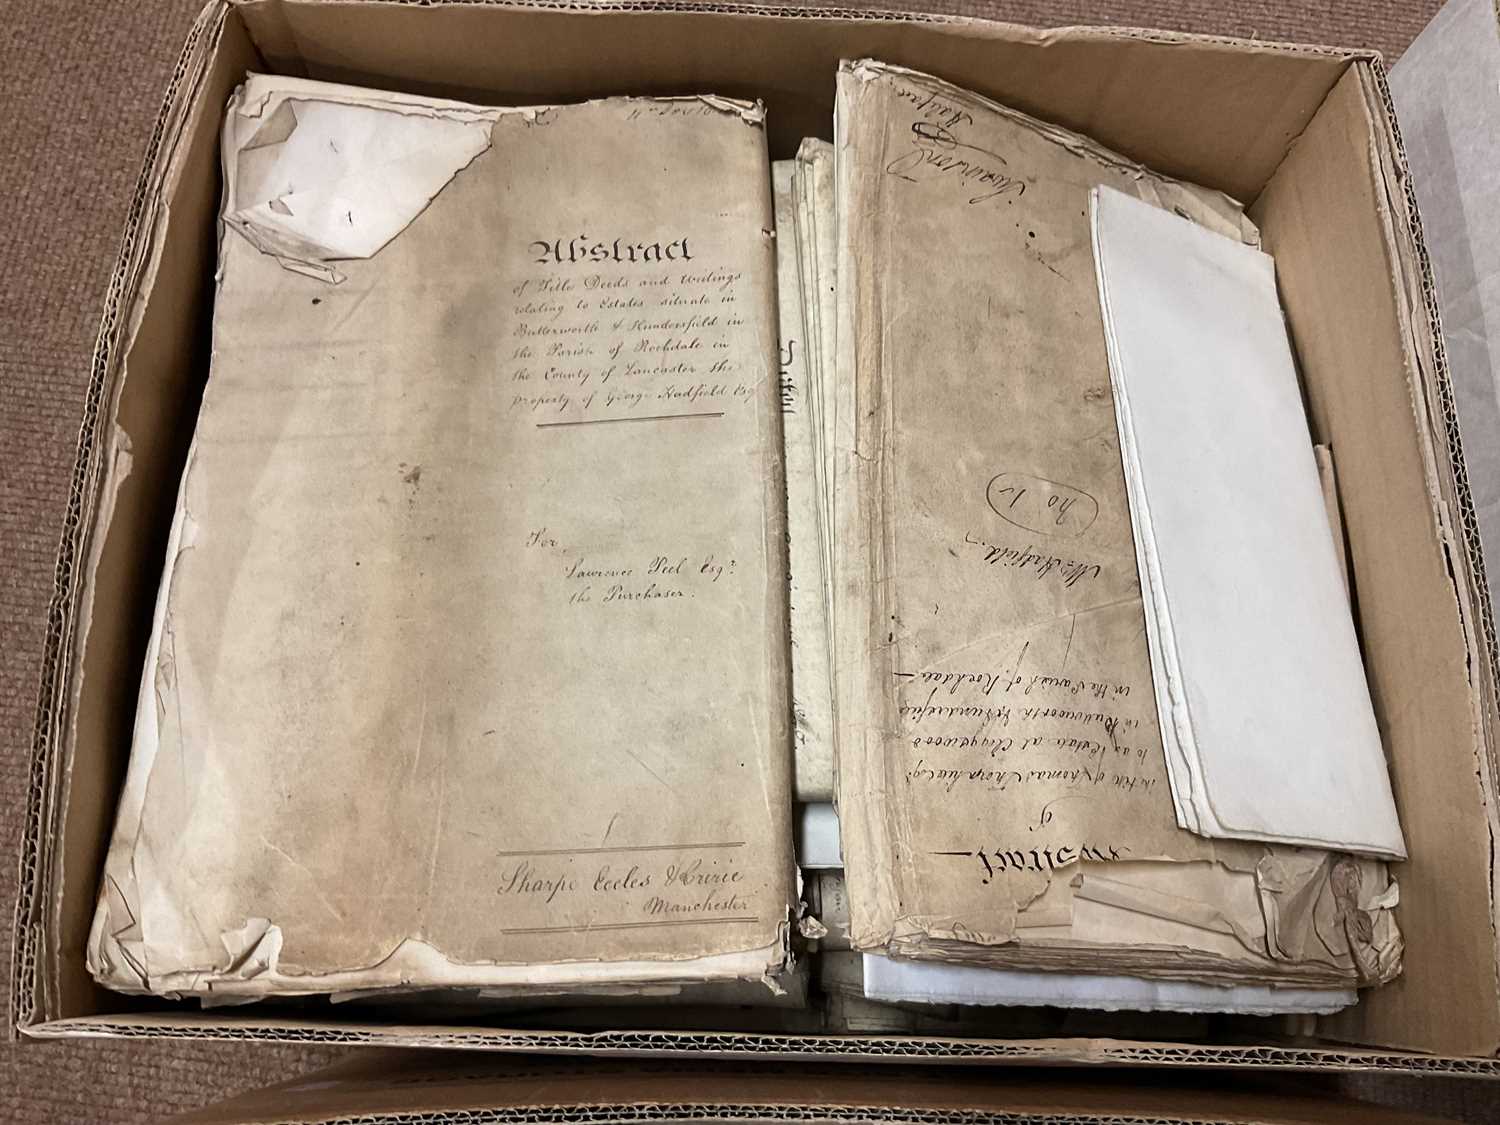 Abstract
of Title Deeds and Writings
relating to Estates situate in
Butterworth & Hundersfield in
the Parish of Rochdale in
the County of Lancaster the
property of George Hadfield Esq
For
Lawrence Peel Esqr.
the Purchaser.
Sharpe Eccles & Cririe
Manchester
Abstract
of
the title of Thomas
to an Estate at Cleggswood
in Butterworth & Hundersfield
in the Parish of Rochdale
Mr. Hadfield
No 1
Swainson